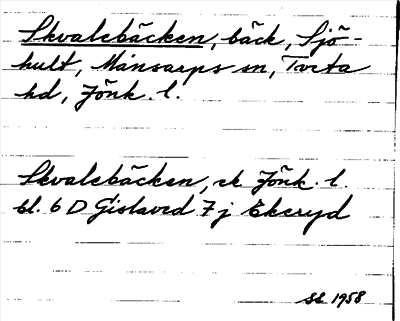 Skvalebäcken, bäck, Sjö-
hult, Månsarps sn, Tveta
hd, Jönk. l.
Skvalebäcken, ek Jönk. l.
bl. 6 D Gislaved 7 j Ekeryd
1958